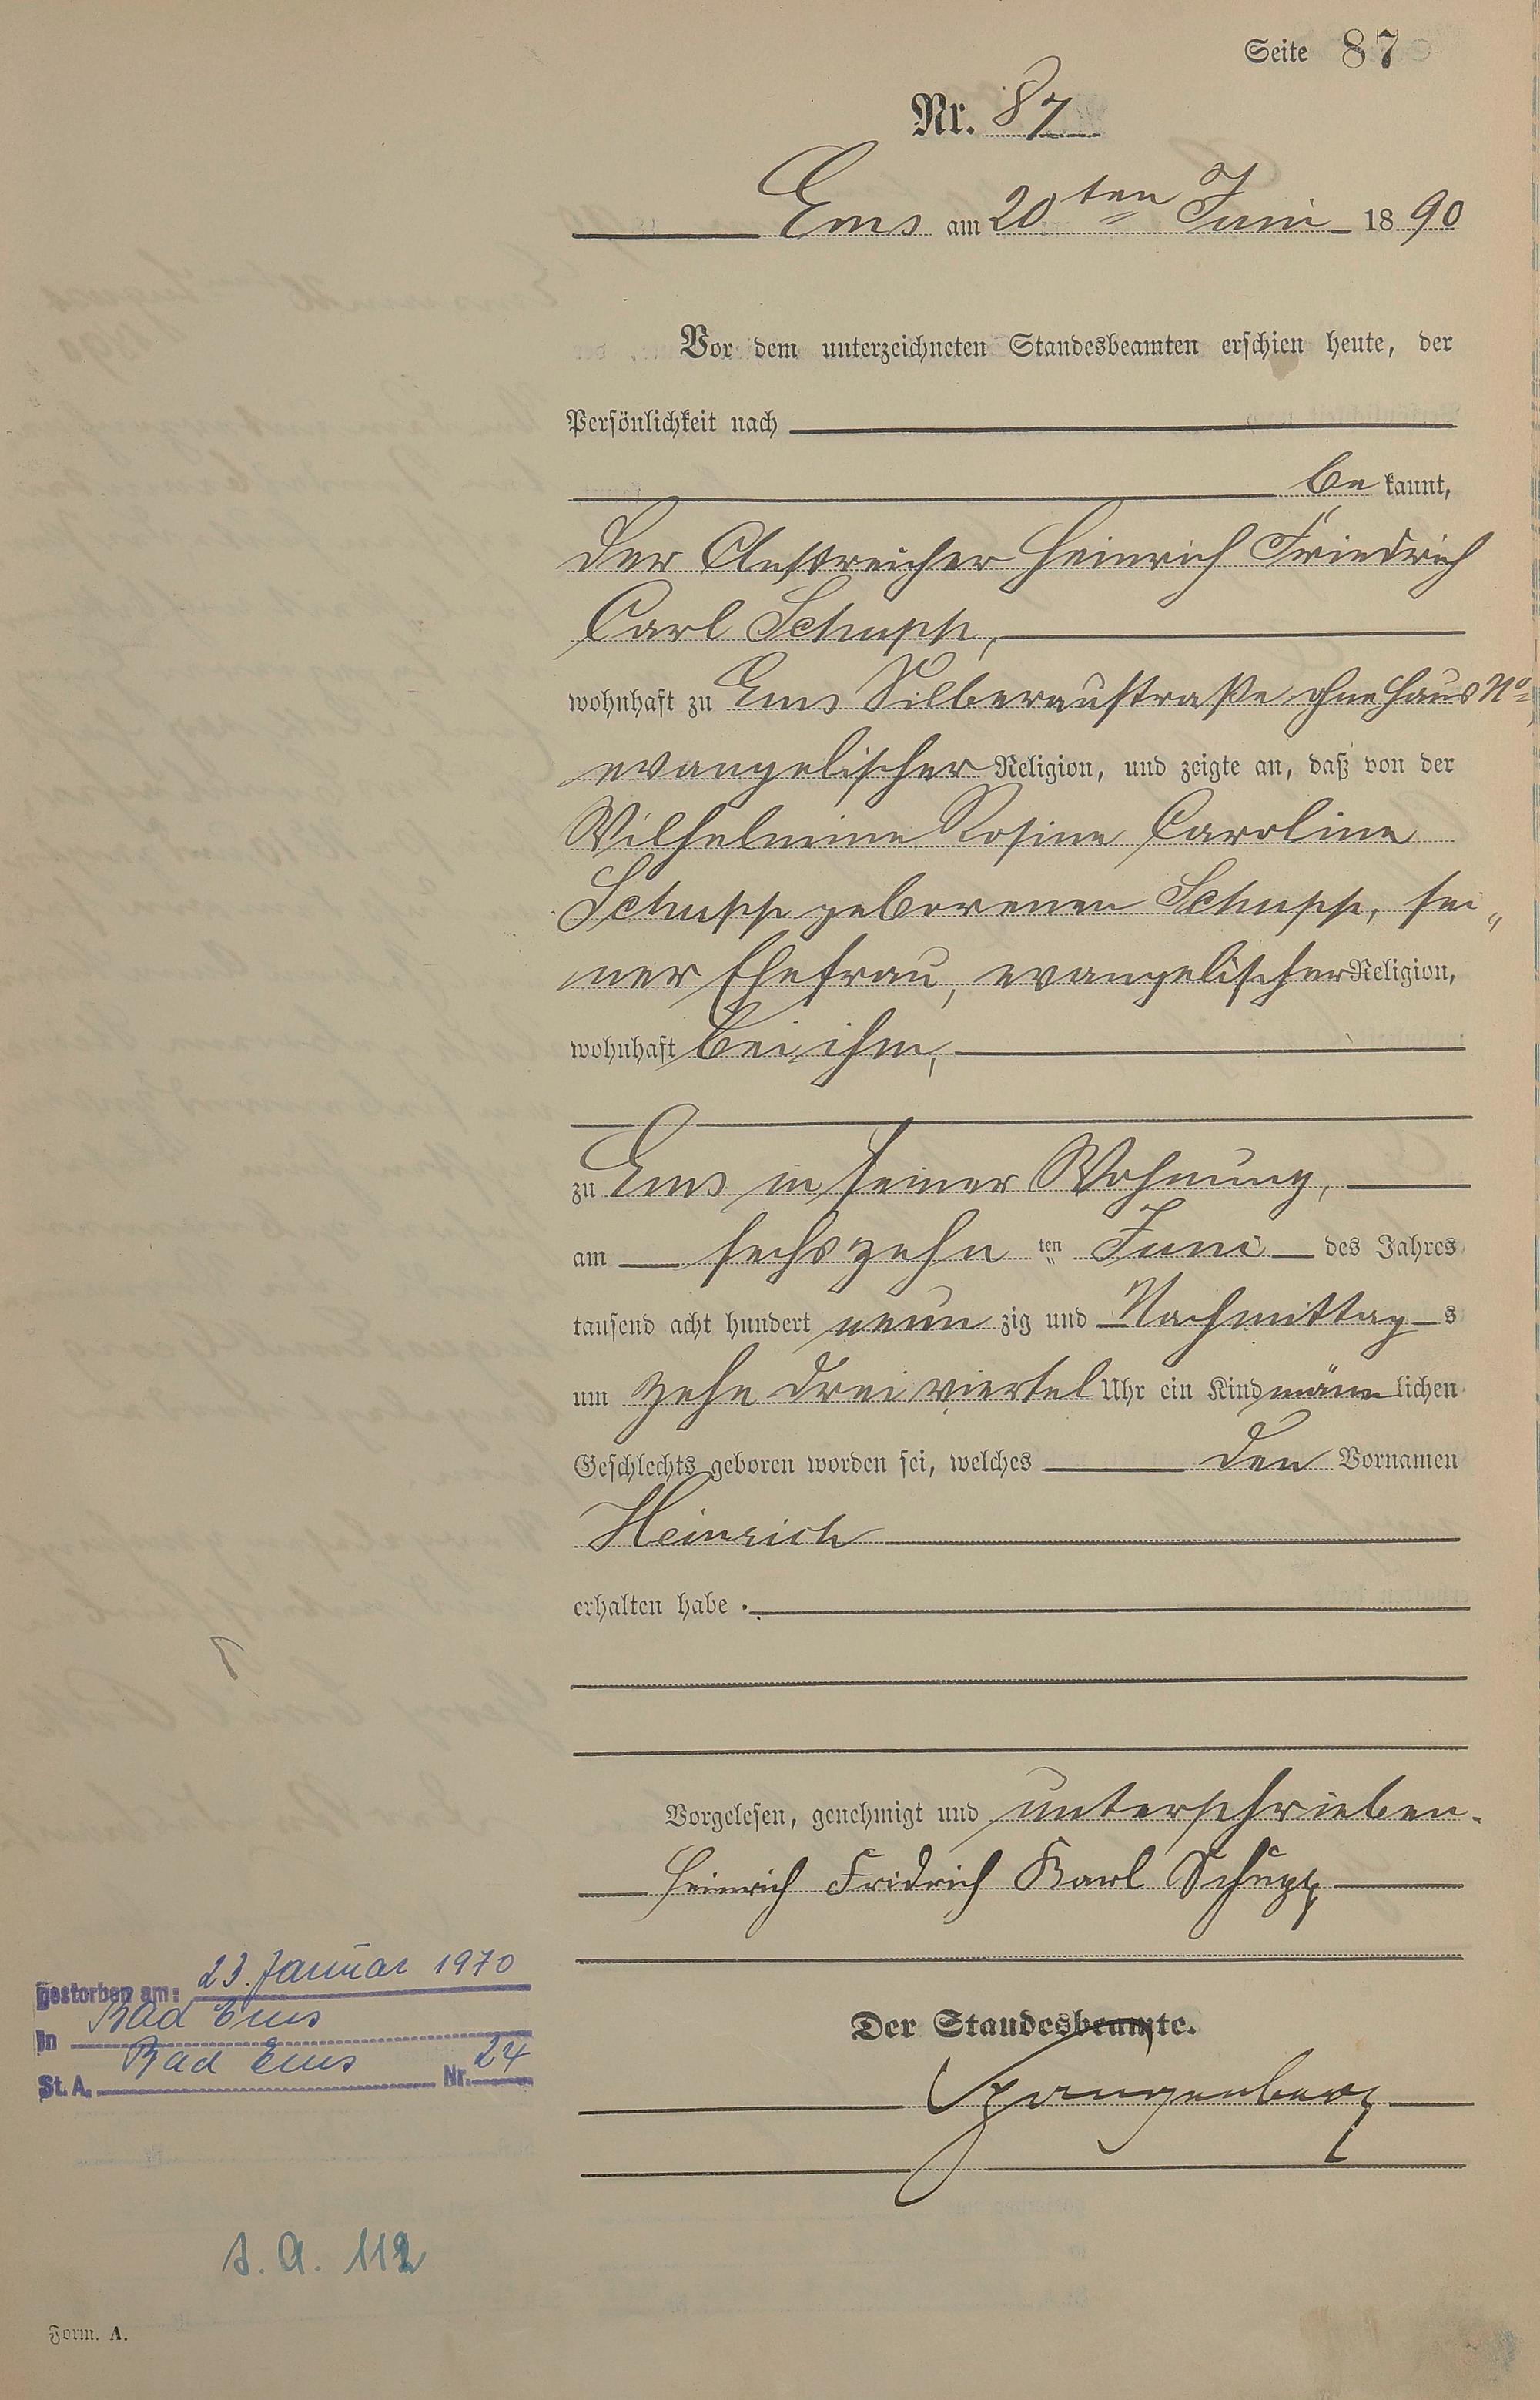 Seite 87
Nr. 87
Ems am 20ten Juni 1890
Vor dem unterzeichneten Standesbeamten erschien heute, der
Persönlichkeit nach
be kannt,
der Anstreicher Heinrich Friedrich
Carl Schupp,
wohnhaft zu Ems Silberaustraße ohne Haus No
evangelischer Religion, und zeigte an, daß von der
Wilhelmine Rosine Caroline
Schupp geborenen Schupp, sei„
ner Ehefrau, evangelischer Religion,
wohnhaft bei ihm,
zu Ems in seiner Wohnung,
am sechszehn ten Juni des Jahres
tausend acht hundert neun zig und Nachmittag s
um zehn dreiviertel Uhr ein Kind männ lichen
Geschlechts geboren worden sei, welches den Vornamen
Heinrich
erhalten habe.
Vorgelesen, genehmigt und unterschrieben.
Heinrich Fridrich Karl Schupp
Der Standesbeamte.
Spangenberg
gestorben am: 23. Januar 1970
in Bad Ems
St. A. Bad Ems Nr. 24
s. a. 112
Form. A.